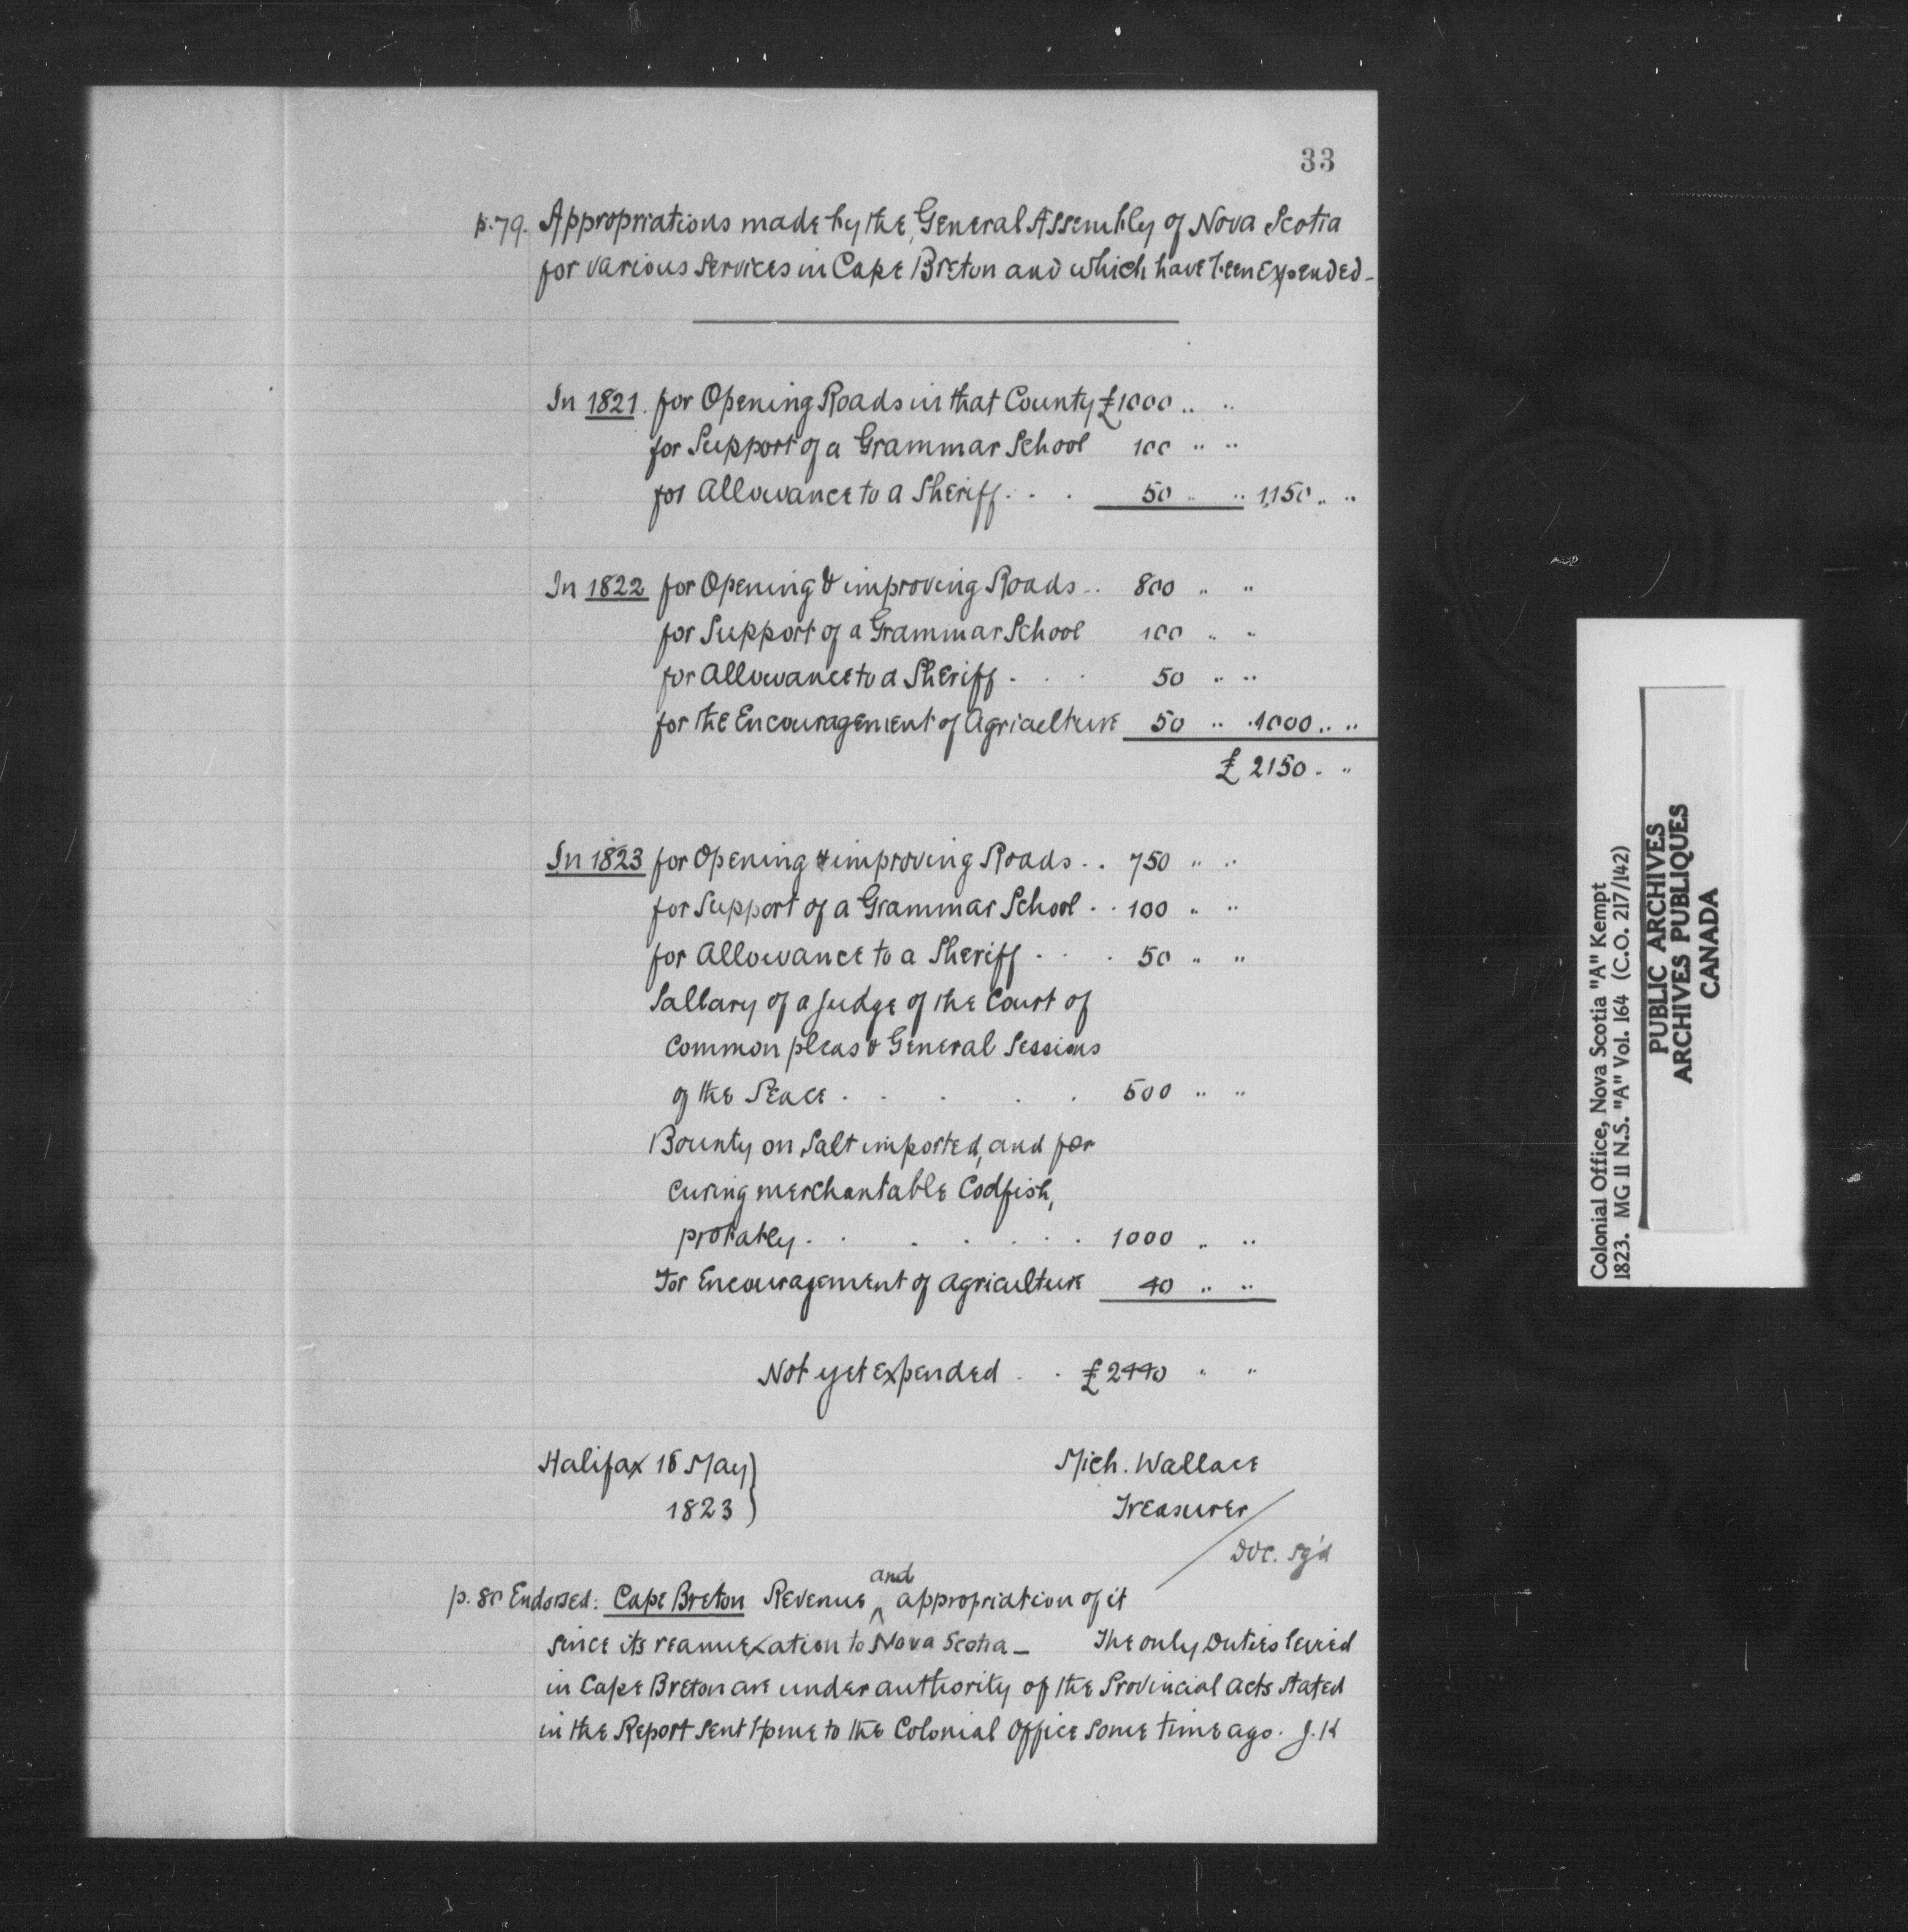 33
p.79. Appropriations made by the General Assembly of Nova Scotia
for various Services in Cape Breton and which have been Expended -
In 1821. for Opening Roads in that County £1000 .. ..
for Support of a Grammar School 100 .. ..
for Allowance to a Sheriff . . . 50 .. .. 1,150 .. ..
In 1822 for Opening & improving Roads .. 800 .. ..
for Support of a Grammar School 100 .. ..
for Allowance to a Sheriff . . . 50 .. ..
for the Encouragement of Agriculture 50 .. .. 1000 .. ..
£ 2150 .. ..
In 1823 for Opening & improving Roads .. 750 .. ..
for Support of a Grammar School . . 100 .. ..
for Allowance to a Sheriff . . . 50 .. ..
Sallary of a Judge of the Court of
Common pleas & General Sessions
of the Peace . . . . . 500 .. ..
Bounty on Salt imported, and for
curing merchantable Codfish,
probably . . . . . . . 1000 .. ..
For Encouragement of Agriculture 40 .. ..
Not yet expended . . £2440 .. ..
Halifax 16 May } Mich. Wallace
1823 } Treasurer
Doc. sg'd
and
p. 80 Endorsed: Cape Breton Revenue ^ appropriation of it
since its reannexation to Nova Scotia - The only Duties levied
in Cape Breton are under authority of the Provincial acts stated
in the Report sent Home to the Colonial Office some time ago. J.K
Colonial Office, Nova Scotia "A" Kempt
1823. MG 11 N.S. "A" Vol. 164 (C.O. 217/142)
PUBLIC ARCHIVES
ARCHIVES PUBLIQUES
CANADA